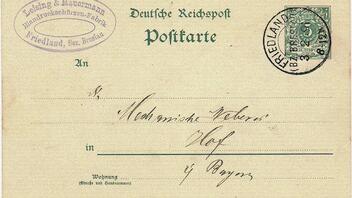 Leising & Mauermann
Handdruckschürzen-Fabrik
Friedland, Bez. Breslau
Deutsche Reichspost
Postkarte
FRIEDLAND
(BZ. BRESLAU)
An
Mechanische Weberei
in Hof
Bayern
Wohnung
(Straße und Hausnummer)